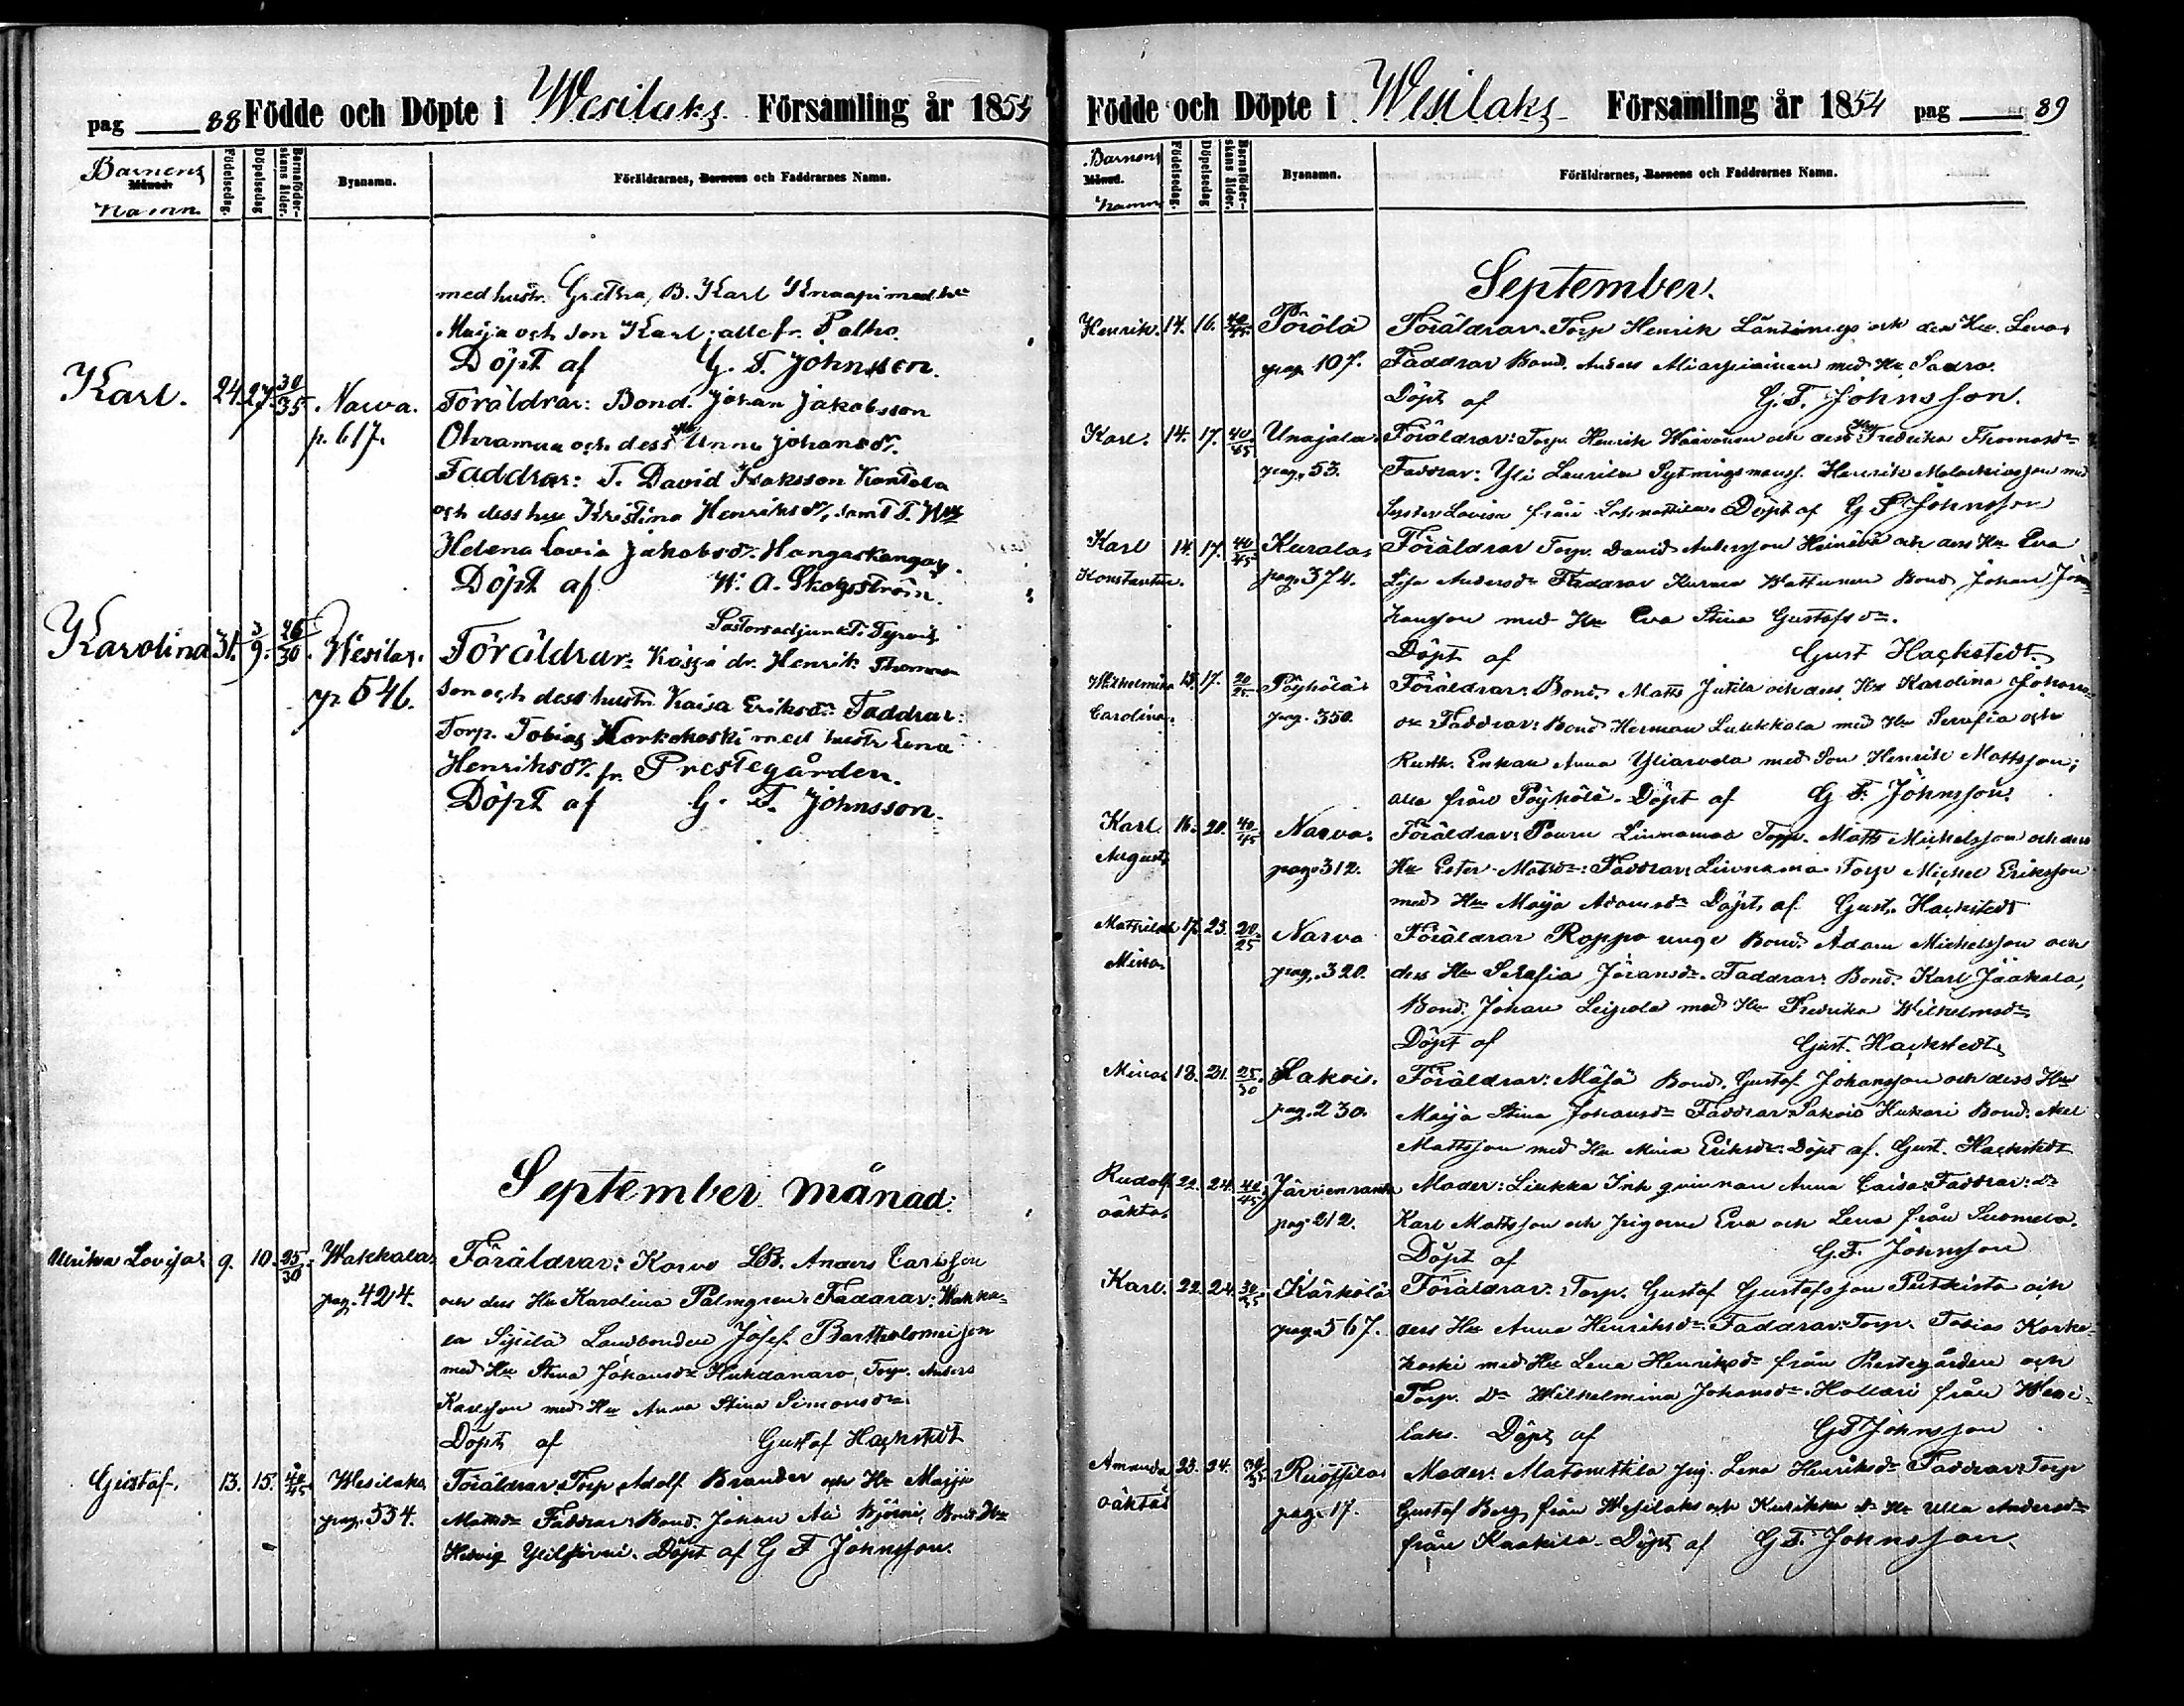 pag 88 Födde och Döpte i Wesilaks Församling år 1854
Barnens Månad. Namn Födelsedag. Döpelsedag Barnaföderskans ålder. Byanamn. Föräldrarnes, Barnens och Faddrarnes Namn.
med hustr. Gretha, B. Karl Knaapi med hu
Maija och son Karl; alle fr. Palho.
Döpt af G. F. Johnsson.
Karl. 24. 27. 30/35 Narva. Föräldrar: Bond. Johan Jakobsson
p. 617. och dess Anna Johansdr.
Faddrar: T. David Isaksson Kontola
och dess hu Kristina Henriksdr, samt T. Hu
Helena Lovia Jakobsdr. Hangaskangas.
Döpt af W. A. Skogström.
Pastorsadjunkt i Tyrvis
Karolina 31. 3/9. 26/30 Wesilax. Föräldrar: dr. Henrik Thomas
p. 546. son och dess hustr. Kaisa Eriksdr Faddrar:
Torp. Tobias Korkekoski med hustr Lena
Henriksdr. fr. Prestegården.
Döpt af G. F. Johnsson.
September månad:
Ulrika Lovisa 9. 10. 25/30 Wakkala Föräldrar: Korvo LB. Anders Carlsson
pag. 424. och dess Hu Karolina Palmgren. Faddrar: Wakka-
la Sipilä Landbonden Josef Bartholomeison
med Hu Stina Johansdr Huhdanaro, Torp. Anders
Karlsson med Hu Anna Stina Simonsdr.
Döpt af Gustaf Hackstedt
Gustaf. 13. 15. 40/45 Wesilaks Föräldrar Torp Adolf Brander och Hu Maija
pag. 554. Mattsdr Faddrar: Bond. Johan Ali Björni, Bond Hu
Hedvig. Döpt af G F Johnsson.
Födde och Döpte i Wesilaks Församling år 1854 pag 89
Barnens Månad. Namn Födelsedag. Döpelsedag Barnaföderskans ålder. Byanamn. Föräldrarnes, Barnens och Faddrarnes Namn.
September.
Henrik. 14. 16. 40/45 Pörölä Föräldrar. Torp Henrik och dess Hu. Leva
pag. 107. Faddrar Bond. Anders med Hu
Döpt af G. F. Johnsson.
Karl. 14. 17. 40/45 Unajala Föräldrar: Torp. Henrik och dess Hu Fredrika Thomasdr
pag. 53. Faddrar: Yli Laurila Sytningsmans. Henrik Malachiasson med
Syster Lovisa från Döpt af G F Johnsson
Karl 14. 17. 40/45 Kurala Föräldrar Torp. David Andersson Heinävä och dess Hu Eva
Konstantin. pag. 374. Lisa Andersdr Faddrar Kurala Wattunen Bond Johan Jo-
hansson med Hu Eva Stina Gustafsdr.
Döpt af Gust Hackstedt.
Wilhelmina 15. 17. 20/25 Pöyhölä Föräldrar: Bond Matts Jutila och dess Hu Karolina Johans-
Carolina. pag. 350. dr Faddrar: Bond Herman Lukkala med Hu Serafia och
Rusth. Enkan Anna Yliaroda med Son Henrik Mattsson;
alla från Pöyhölä. Döpt af G F. Johnsson.
Karl 16. 20. 40/45 Narva. Föräldrar: Linnamaa Torp. Matts Michelsson och dess
August. pag. 312. Hu Ester Matsdr: Faddrar: Linnama Torp Michel Eriksson
med Hu Maija Adamsdr Döpt af Gust. Hackstedt
Mathilda 17. 23. 20/25 Narva Föräldrar Roppo unge Bond. Adam Michelsson och
Mina. pag. 320. dess Hu Serafia Jöransdr. Faddrar: Bond. Karl Jäakala,
Bond. Johan Leipola med Hu Fredrika Wilhelmsdr
Döpt af Gust. Hackstedt.
Mina 18. 21. 25/30 Sakois. Föräldrar: Mäsä Bond. Gustaf Johansson och dess Hu
pag. 230. Maija Stina Johansdr Faddrar: Sakois Hukari Bond. Axel
Mattsson med Hu Mina Eriksdr: Döpt af. Gust. Hackstedt
Rudolf 22. 24. 40/45 Järvenranta Moder: Liukka Inh qvinnan Anna Caisa: Faddrar: Dr
oäkta. pag. 212. Karl Mattsson och pigorne Eva och Lena från Suomela.
Döpt af G.F. Johnsson
Karl. 22. 24. 30/35 Kärkölä Föräldrar: Torp. Gustaf Gustafsson Putkisto och
pag. 567. dess Hu Anna Henriksdr. Faddrar: Torp. Tobias Korke-
koski med Hu Lena Henriksdr från Prestegården och
Torp. Dr Wilhelmina Johansdr Hollari från Wesi-
laks. Döpt af G F Johnsson
Amanda 23. 24. 30/35 Ruossila Moder: Matomäkila pig. Lena Henriksdr Faddrar: Torp
oäkta pag. 17. Gustaf Berg från Wesilaks och Kurikka dr Hu Ulla Andersdr
från Kaakila. Döpt af G. F. Johnsson.